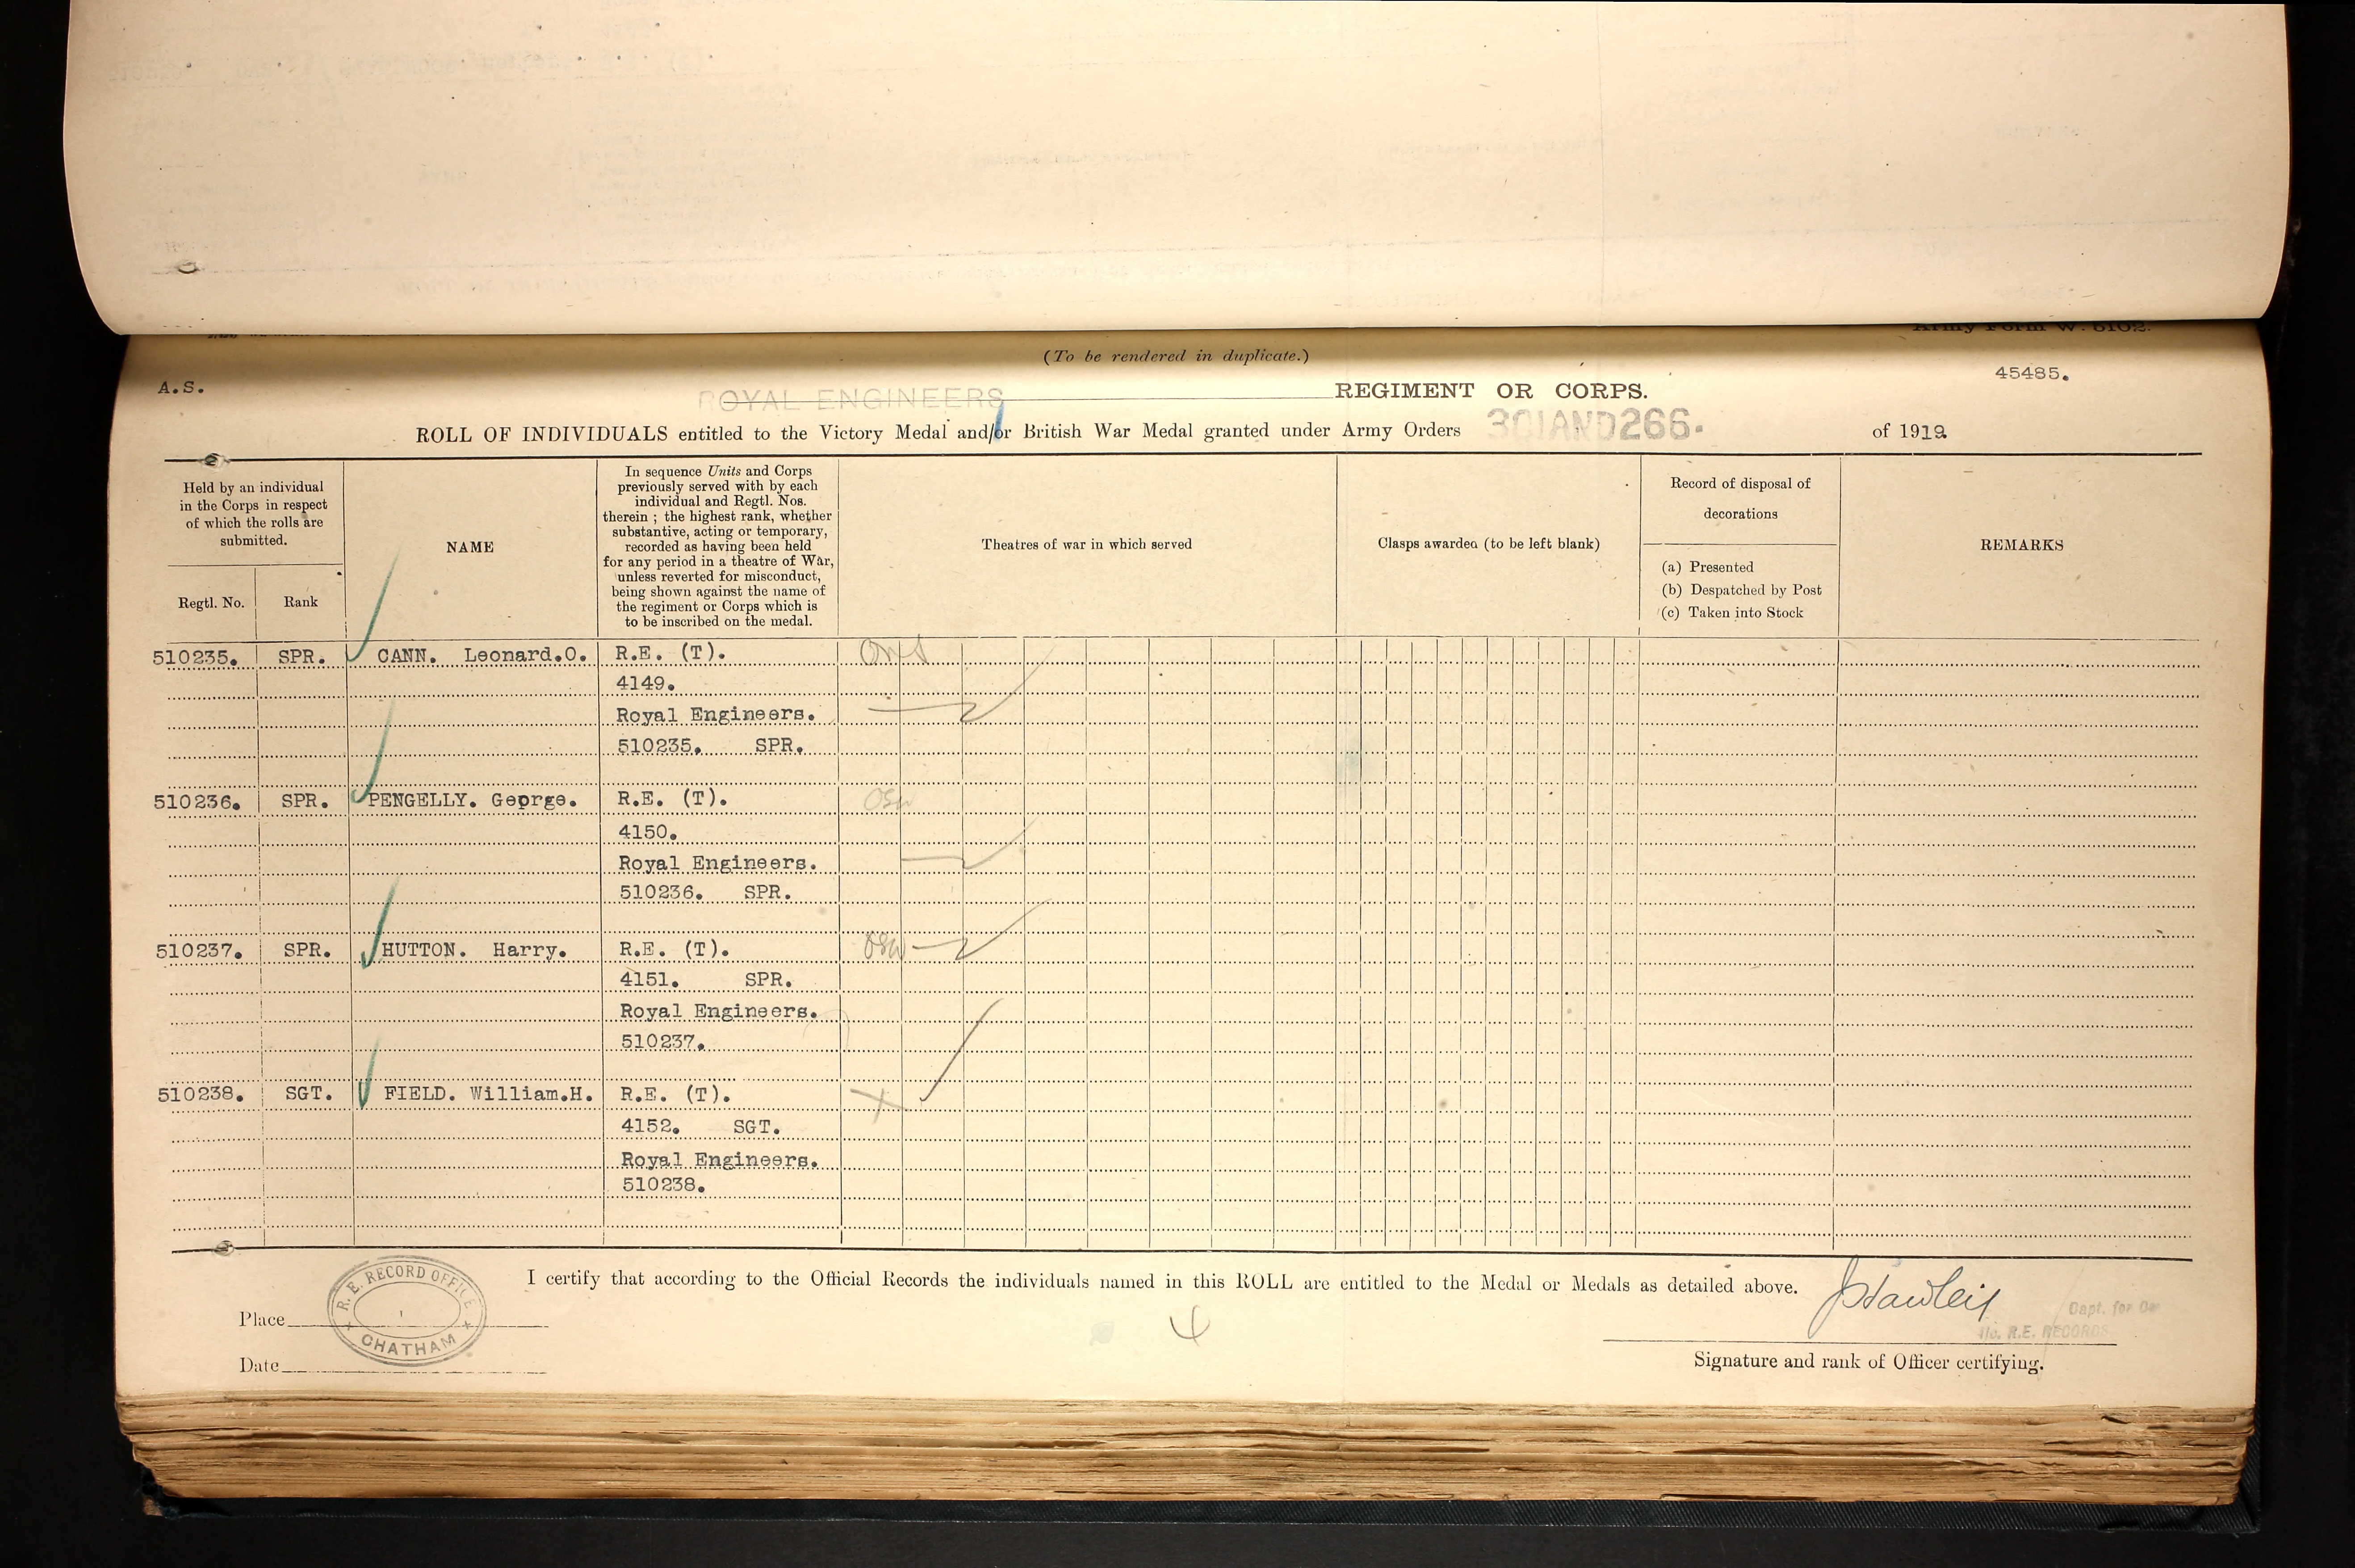 Army Form W. 5102.
(To be rendered in duplicate.)
A.S.
45485.
ROYAL ENGINEERS REGIMENT OR CORPS.
ROLL OF INDIVIDUALS entitled to the Victory Medal and/or British War Medal granted under Army Orders 301AND266. of 1919.
Held by an individual
in the Corps in respect
of which the rolls are
submitted.
Regtl. No.
Rank
NAME
In sequence Units and Corps
previously served with by each
individual and Regtl. Nos.
therein ; the highest rank, whether
substantive, acting or temporary,
recorded as having been held
for any period in a theatre of War,
unless reverted for misconduct,
being shown against the name of
the regiment or Corps which is
to be inscribed on the medal.
Theatres of war in which served
Clasps awarded (to be left blank)
Record of disposal of
decorations
(a) Presented
(b) Despatched by Post
(c) Taken into Stock
REMARKS
510235. SPR. CANN. Leonard.O. R.E. (T).
4149.
Royal Engineers.
510235. SPR.
510236. SPR. PENGELLY. George. R.E. (T).
4150.
Royal Engineers.
510236. SPR.
510237. SPR. HUTTON. Harry. R.E. (T).
4151. SPR.
Royal Engineers.
510237.
510238. SGT. FIELD. William.H. R.E. (T). X
4152. SGT.
Royal Engineers.
510238.
I certify that according to the Official Records the individuals named in this ROLL are entitled to the Medal or Medals as detailed above.
R. E. RECORD OFFICE
CHATHAM
Place
Date
4
Capt. for
i/c. R.E. RECORDS
Signature and rank of Officer certifying.